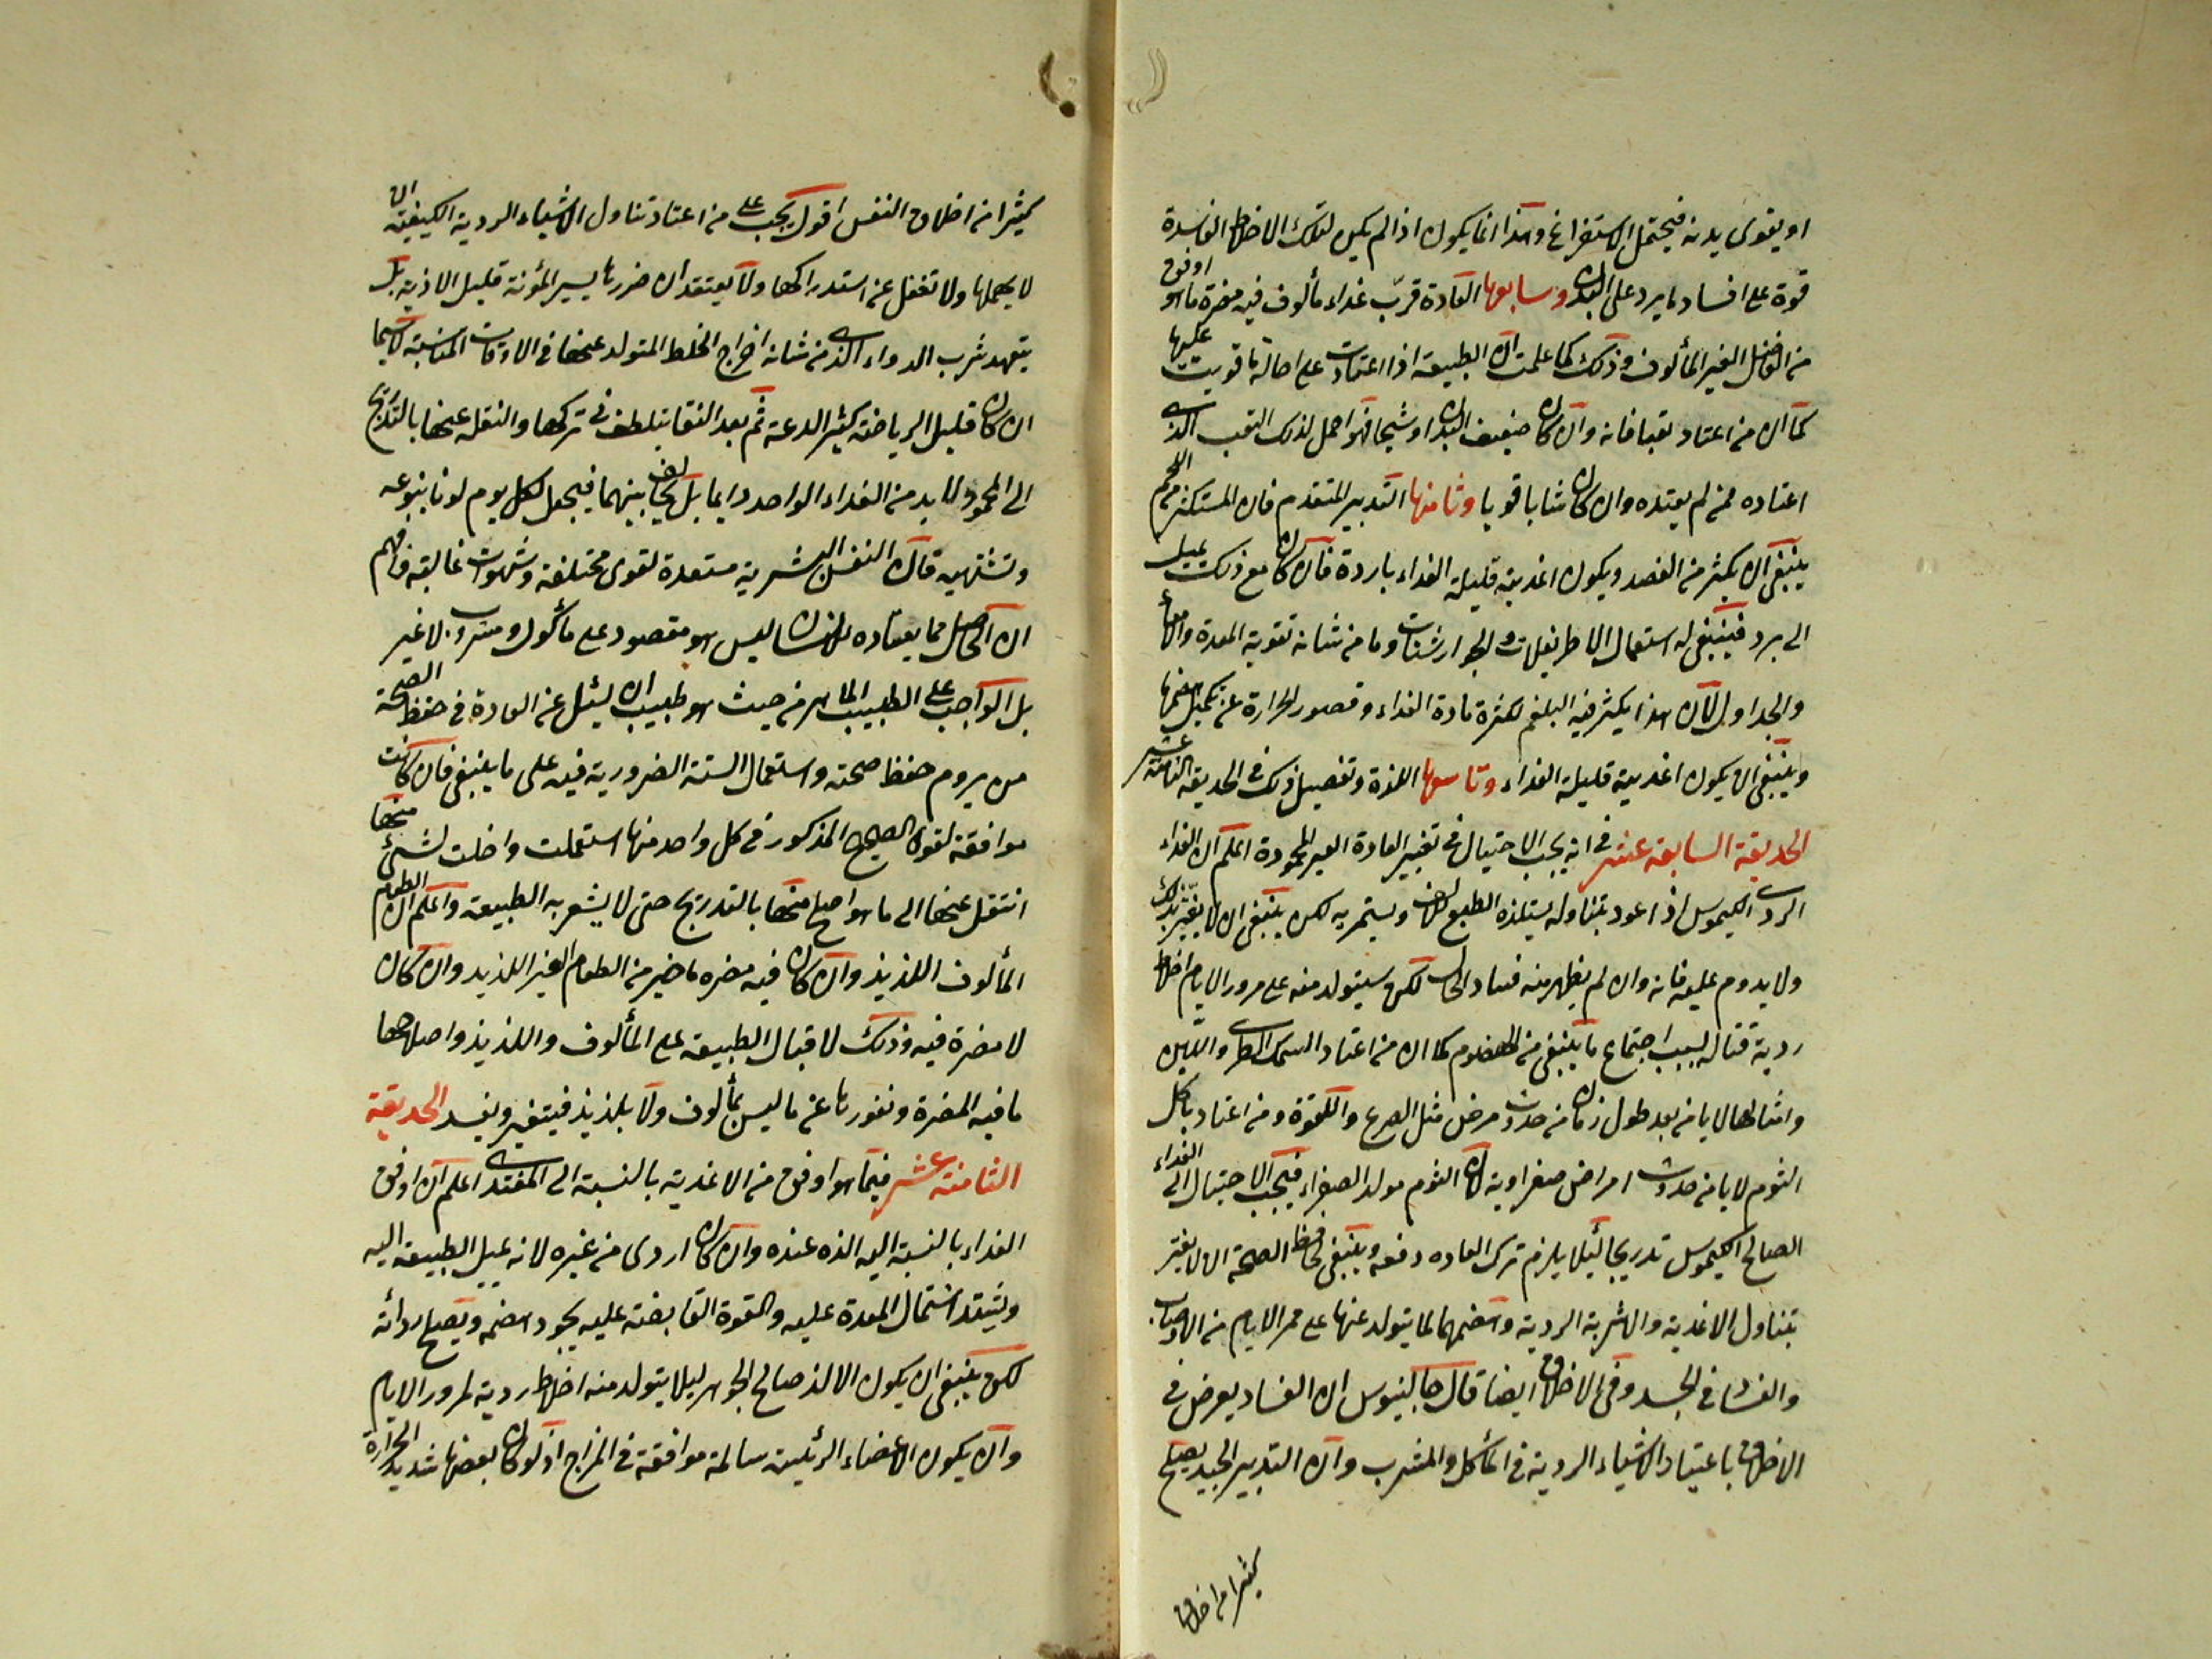 او يقوى بدنه فيحتمل الاستفراغ وهذا انما يكون اذا لم يكن لتلك الاخلاط الفاسدة
قوة على افساد ما يرد على البدن وسابعها العادة فرب غذاء مألوف فيه مضرة ما هو اوفق
من الفاضل الغير المألوف وذلك كما علمت ان الطبيعة اذا اعتادت على احالة ما قويت عليها
كما ان من اعتاد تعبا فانه وان كان ضعيف البدن او شيخا فهو احمل لذلك التعب الذى
اعتاده ممن لم يعتده وان كان شابا قويا وثامنها التدبير المتقدم فان المستكثر من اللحم
ينبغى ان يكثر من الفصد ويكون اغذيته قليلة الغذاء باردة فان كان مع ذلك يميل
الى برد فينبغى له استعمال الاطريفلات والجوارشنات وما من شانه تقوية المعدة والامعاء
والجداول لان هذا يكثر فيه البلغم لكثرة مادة الغذاء وقصور الحرارة عن تكميل هضمها
وينبغى ان يكون اغذيته قليلة الغذاء وتاسعها اللذة وتفصيل ذلك فى الحديقة الثامنة عشر
الحديقة السابعة عشر فى انه يجب الاحتيال فى تغيير العادة الغير المحمودة اعلم ان الغذاء
الردى الكيموس اذا اعود بتناوله يستلذه الطبع ويستمريه لكن ينبغى ان لا يغتر بذلك
ولا يدوم عليه فانه وان لم يظهر منه فساد فى الحال لكن سيتولد منه على مرور الايام اخلاط
ردية قتالة بسبب اجتماع ما ينبغى من الهضوم كما ان من اعتاد السمك الطرى واللبن
وامثالها لا يامن بعد طول زمان من حدوث مرض مثل الصرع واللقوة ومن اعتاد باكل
الثوم لا يامن حدوث امراض صفراوية لان الثوم مولد الصفراء فيجب الاحتيال الى الغذاء
الصالح الكيموس تدريجا لئلا يلزم ترك العاده دفعه وينبغى لحافظ الصحة ان لا يغتر
بتناول الاغذية والاشربة الردية وهضمهما لما يتولد عنها على ممر الايام من الاوصاب
والفساد فى الجسد وفى الاخلاق ايضا قال جالينوس ان الفساد يعرض فى
الاخلاق باعتياد الاشياء الردية فى المأكل والمشرب وان التدبير الجيد يصلح
كثيرا من اخلاق
كثيرا من اخلاق النفس اقول يجب على من اعتاد تناول الاشياء الردية الكيفية ان
لا يهملها ولا تغفل عن استدراكها ولا يعتقد ان ضررها يسير المؤنة قليل الاذية بل
يتعهد شرب الدواء الذى من شانه اخراج الخلط المتولد عنها فى الاوقات المناسبة لاسيما
ان كان قليل الرياضة كثير الدعة ثم بعد النقا يتلطف فى تركها والنقلة عنها بالتدريج
الى المحمود لابد من الغذاء الواحد دايما بل يخالف بينهما فيجعل لكل يوم لونا ينوعه
وتشتهيه فان النفس البشرية مستعدة لقوى مختلفة وشهوات غالبة فافهم
ان الحاصل مما يعتاده الانسان ليس هو مقصود على مأكول ومشروب لا غير
بل الواجب على الطبيب الماهر من حيث هو طبيب ان يسئل عن العادة فى حفظ الصحة
من يروم حفظ صحته واستعمال الستة الضرورية فيه على ما ينبغى فان كانت
موافقة لقول الصحيح المذكور فى كل واحد منها استعملت واخلت لشئ منها
انتقل عنها الى ما هو اصلح منها بالتدريج حتى لا يشعر به الطبيعة واعلم ان الطعام
المألوف اللذيذ وان كان فيه مضره ما خير من الطعام الغير اللذيذ وان كان
لا مضرة فيه وذلك لاقبال الطبيعة على المألوف واللذيذ واصلاحها
ما فيه المضرة ونفورها عن ما ليس بمألوف ولا بلذيذ فيتغير ويفسد الحديقة
الثامنة عشر فيما هو اوفق من الاغذية بالنسبة الى المغتذى اعلم ان اوفق
الغذاء بالنسبة اليه الذه عنده وان كان اردى من غيره لانه يميل الطبيعة اليه
ويشتد اشتمال المعدة عليه والقوة القابضة عليه يجود هضمه ويصلح ردائة
لكن ينبغى ان يكون الالذ صالح الجوهر ليلا يتولد منه اخلاط ردية لمرور الايام
وان يكون الاعضاء الرئيسة سالمة موافقة فى المزاج اذ لو كان بعضها شديد الحرارة